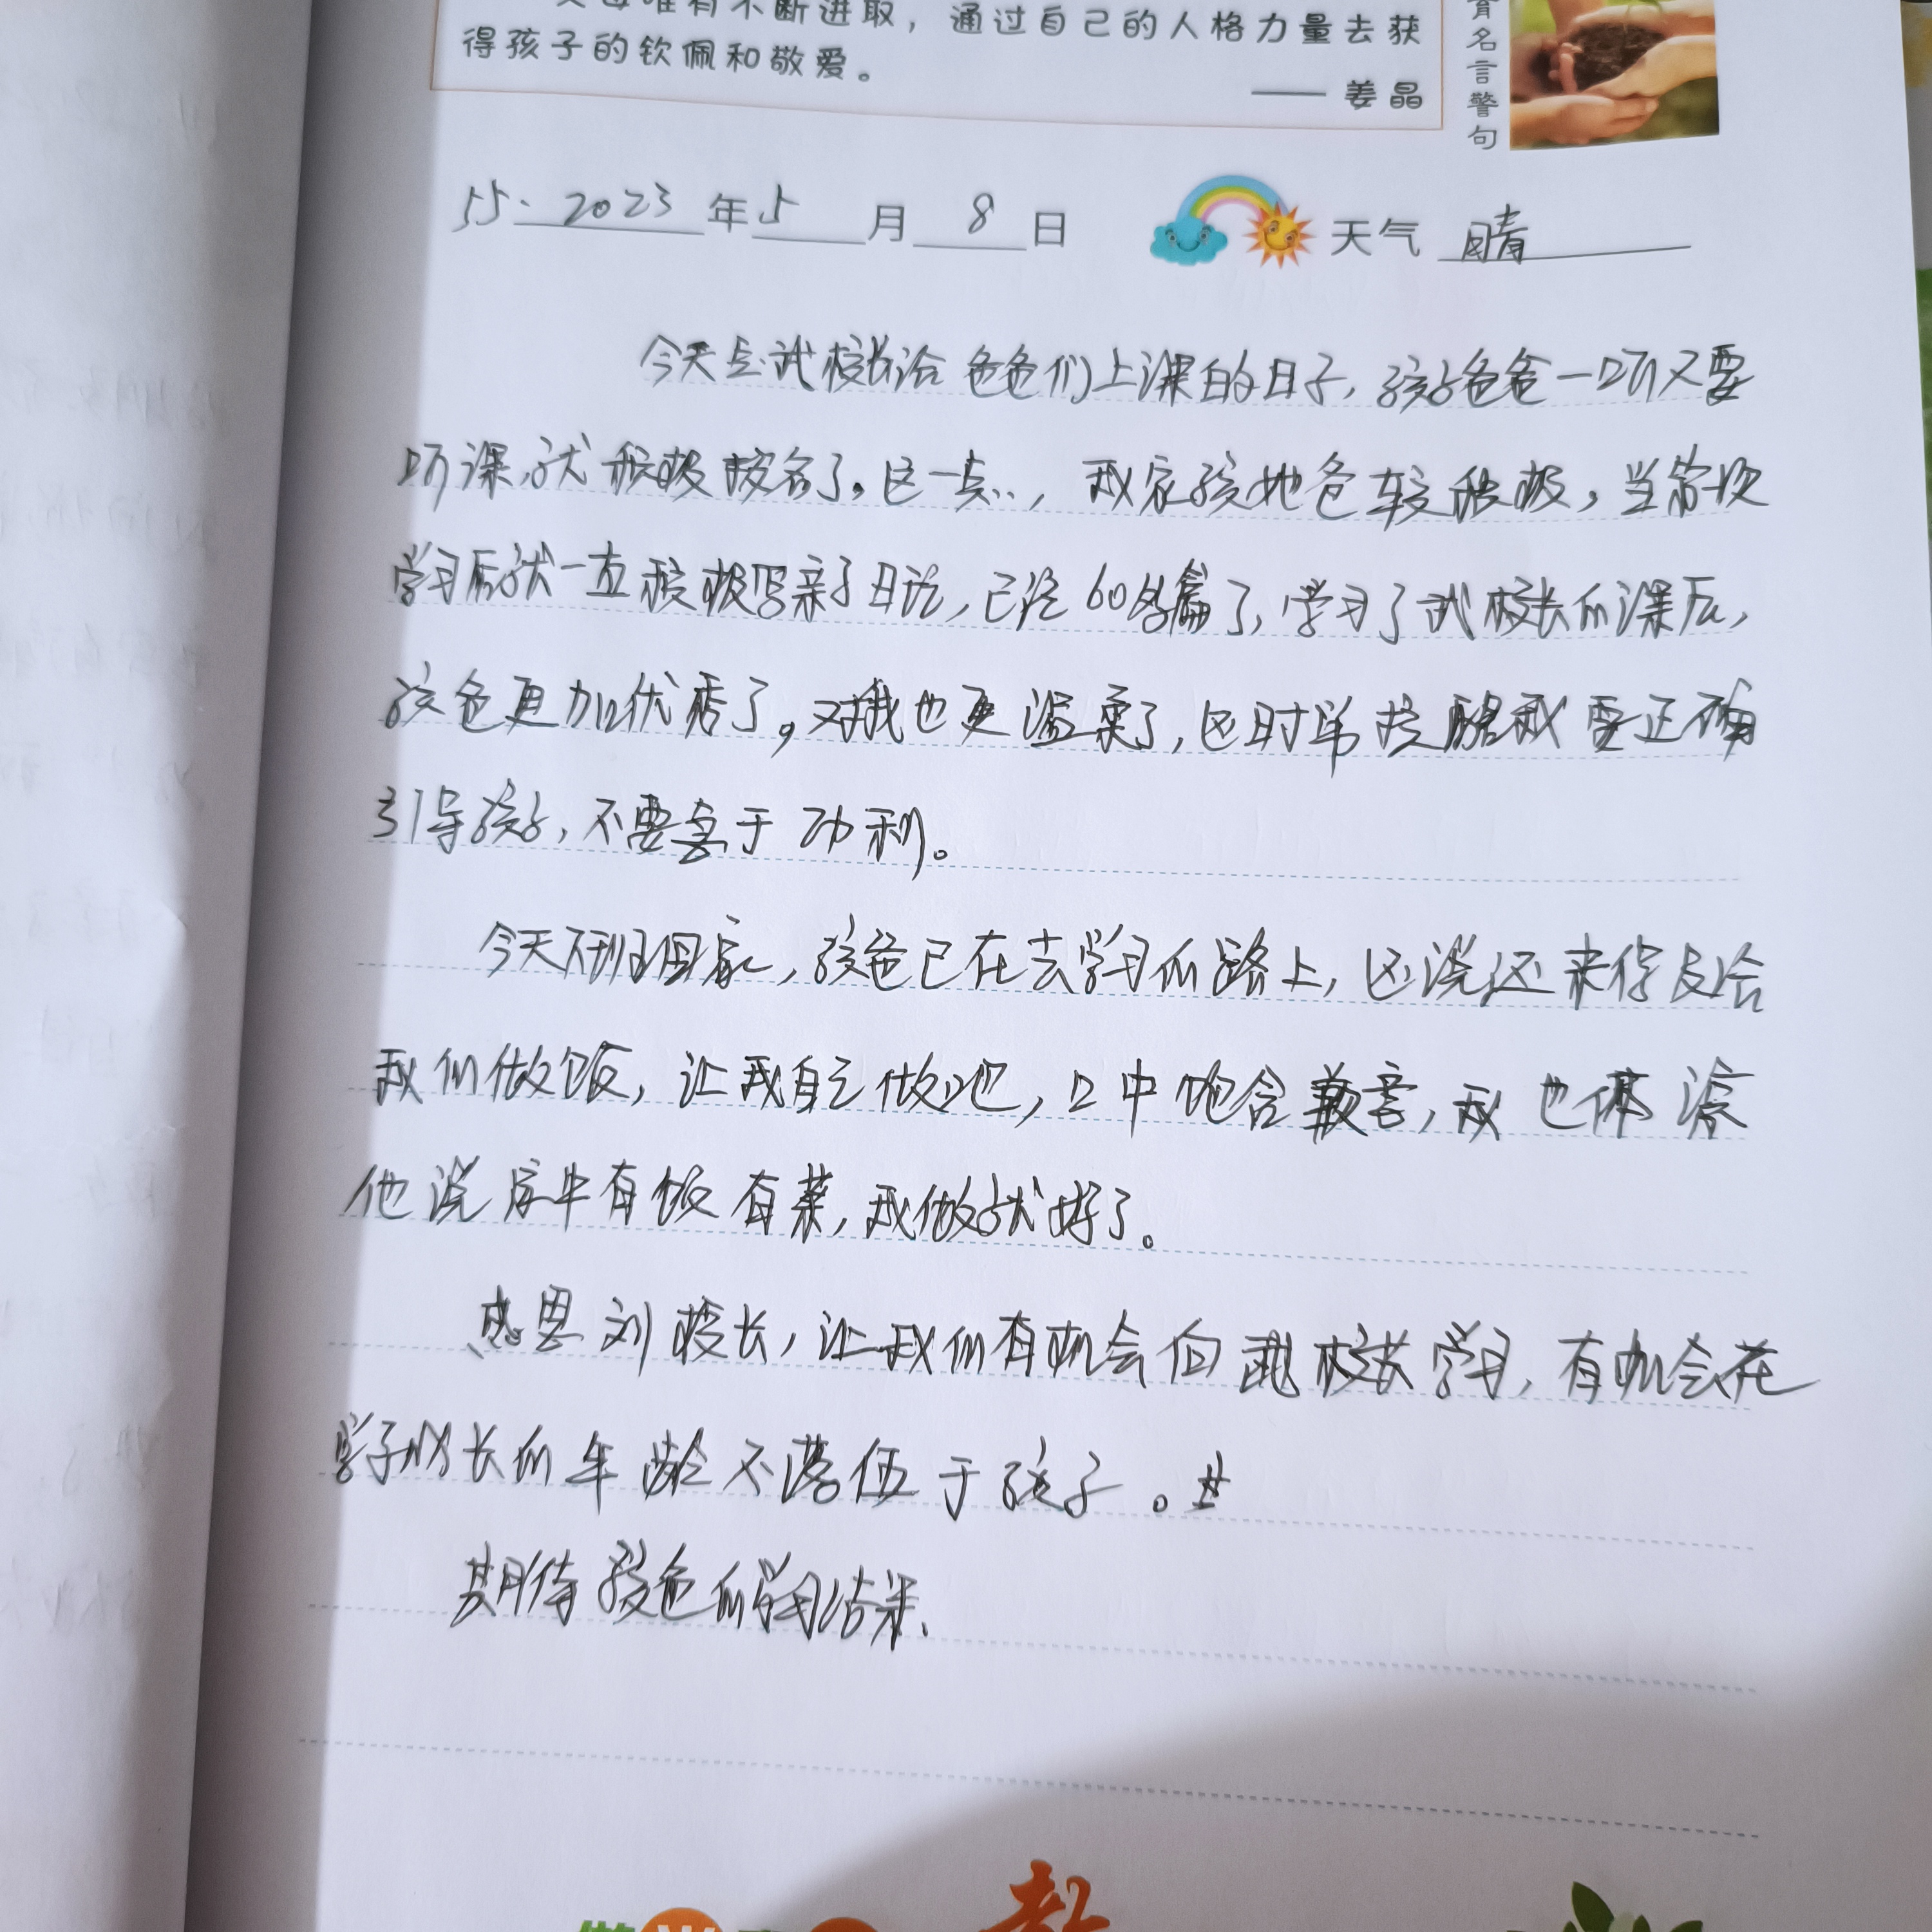 不断进取，通过自己的人格力量去获
得孩子的钦佩和敬爱。
—— 姜晶
育名言警句
55. 2023年5月8日 天气 晴
今天是武校长给爸爸们上课的日子，孩子爸爸一听又要
听课，就积极报名了。这一点，我家孩他爸较积极，当首次
学习后就一直积极写亲子日记，已经60多篇了，学习了武校长的课后，
孩爸更加优秀了，对我也更温柔了，这时常提醒我要正确
引导孩子，不要急于功利。
今天下班回家，孩爸已在去学习的路上，还说还来得及给
我们做饭，让我自己做吧，口中饱含歉意，我也体谅
他说家中有饭有菜，我做就好了。
感恩刘校长，让我们有机会向武校长学习，有机会在
学子成长的年龄不落伍于孩子。
期待孩爸的学习结果.